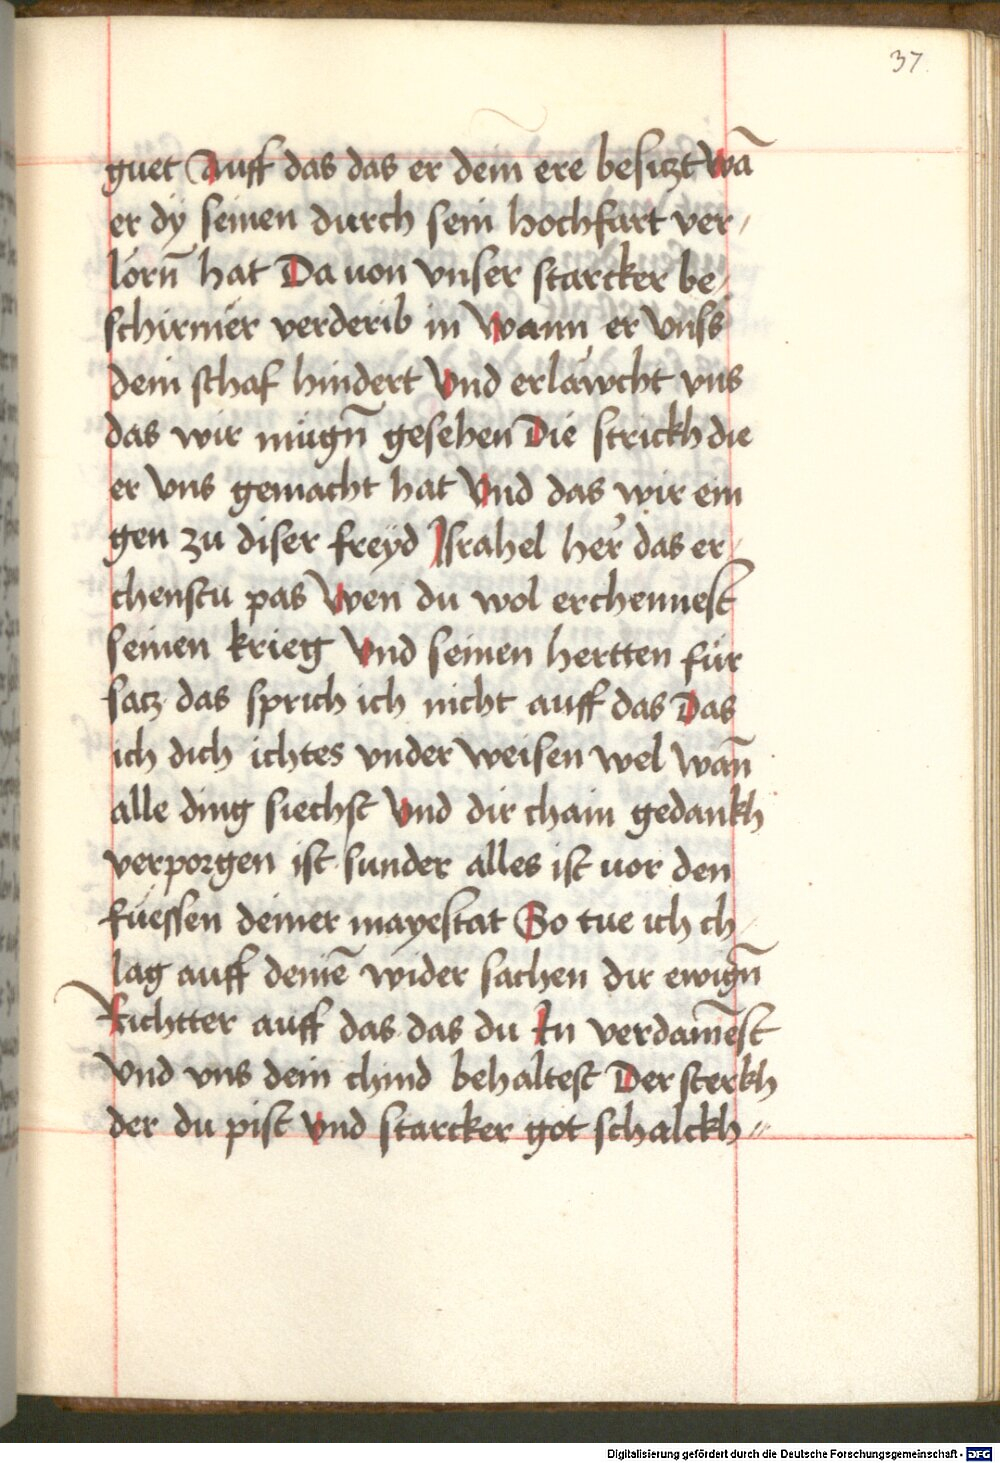 37.
guet Auff das das er dein ere besitzt wā
er dy seinen durch sein hochfart ver⸗
lorn̄ hat Da uon vnser starcker be⸗
schirmer verderib in Wann er vnss
dein schaf hindert Vnd erläwcht vns
das wir mügn̄ gesehen Die strickh die
er vns gemacht hat Vnd das wir ein
gen zu diser freyd Israhel her̓ das er⸗
chenstu pas Wen du wol erchennest
seinen krieg Vnd seinen hertten für
satz das sprich ich nicht auff das Das
ich dich ichtes vnder weisen wel wan̄
alle ding siechst Vnd dir chain gedankh
verporgen ist sunder alles ist uor den
füessen deiner mayestat So tue ich ch⸗
lag auff deinē wider sachen dir ewign̄
Richtter auff das das du In verdam̄est
vnd vns dein chind behaltest Der sterkh
der du pist Vnd starcker got schalckh⸗
Digitalisierung gefördert durch die Deutsche Forschungsgemeinschaft - DFG